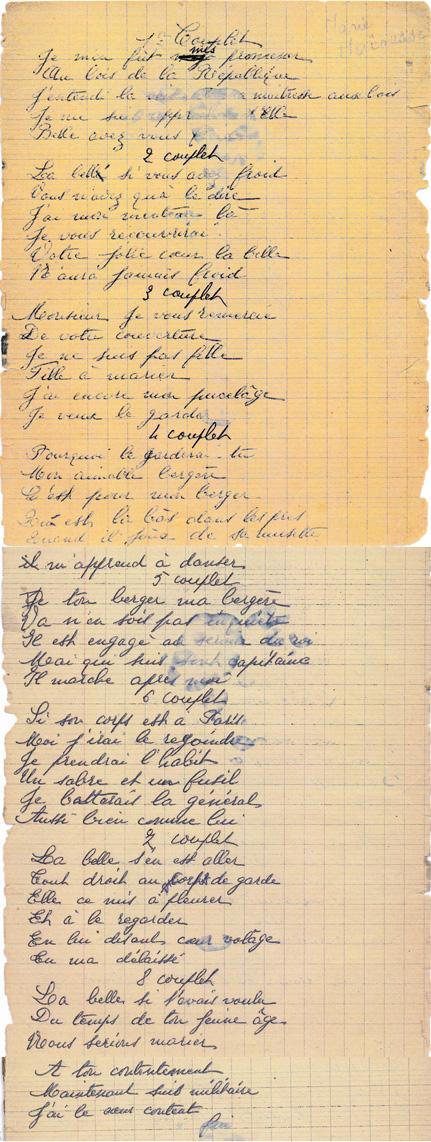 1er Couplet
Marie
Je m'en fut mes promener
Au bois de la République
J'entendi la maitresse aux bois
Je me suis Elle
Belle avez vous
2 couplet
La belle si vous avez froid
Vous n'avez qu'à le dire
J'ai mon manteau là
Je vous recouvrirai
Votre jolie cœur la belle
N'aura jamais froid
3 couplet
Monsieur je vous remercie
De votre couverture
Je ne suis pas fille
Fille à marier
J'ai encore mon pucelâge
Je veux le garder
4 couplet
Pourquoi le garderai-tu
Mon aimable bergère
C'est pour mon berger
Qui est là bas dans les prés
Quand il joue de sa musette
il m'apprend à danser
5 couplet
De ton berger ma bergère
Va n'en sois pas inquiète
Il est engagé au service du roi
Moi qui suis capitaine
Il marche après moi
6 couplet
Si son corps est à Paris
Moi j'irai le rejoindre
Je prendrai l'habit
Un sabre et un fusil
Je batterais la général
Aussi bien comme lui
7 couplet
La belle s'en est aller
Tout droit au corps de garde
Elle ce mis à pleurer
Et à le regarder
En lui disant cœur volage
Tu ma délaissé
8 couplet
La belle si t'avais voulu
Du temps de ton jeune âge
Nous serions marier
A ton contentement
Maintenant suis militaire
J'ai le cœur content
fin